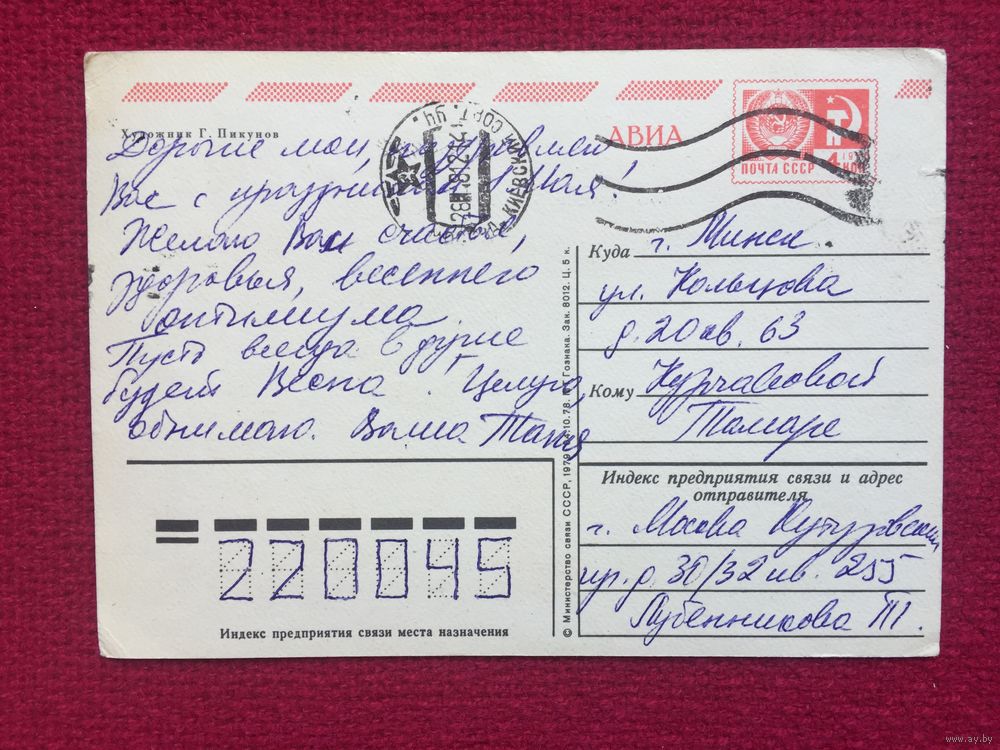 Художник Г. Пикунов
АВИА
ПОЧТА СССР
Дорогие мои, поздравляю
Вас с праздником 1 Мая!
Желаю Вам счастья,
здоровья, весеннего
оптимизма.
Пусть всегда в душе
будет Весна. Целую,
обнимаю. Ваша Таня
Куда г. Минск
ул. Кольцова
д. 20 кв. 63
Кому Курчавовой
Тамаре
Индекс предприятия связи и адрес
отправителя
г. Москва Кутузовский
пр. д. 30/32 кв. 255
Лубенникова Т.
220045
Индекс предприятия связи места назначения
© Министерство связи СССР, 1979
10.78. Гознака. Зак. 8012. Ц. 5 к.
КИЕВСКИЙ СОРТ. УЧ.
www.ay.by